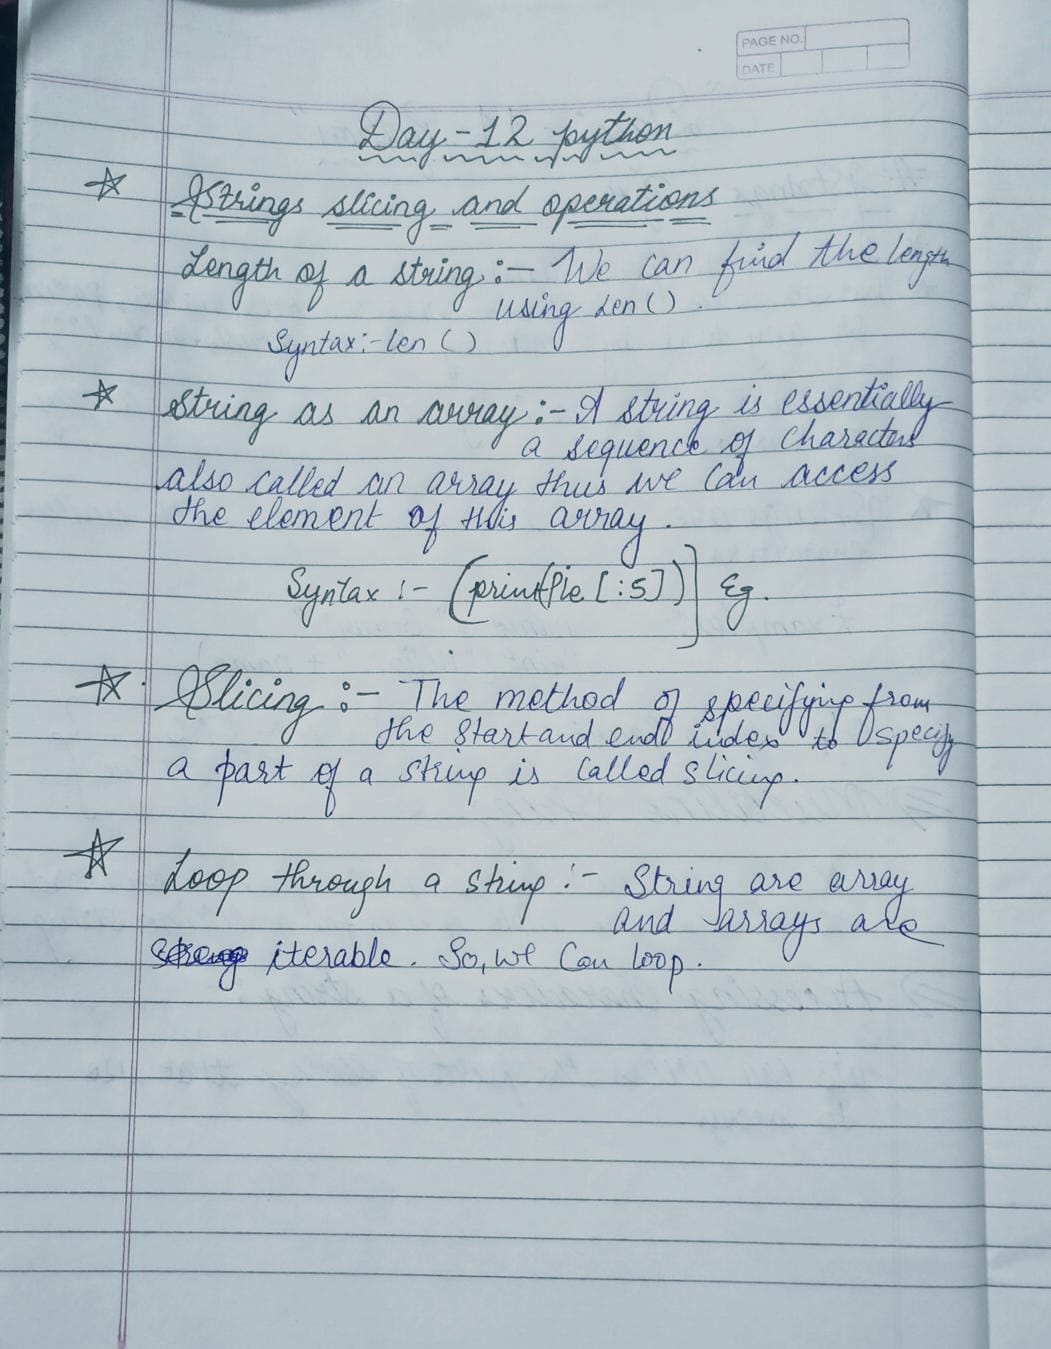 PAGE NO.
DATE
Day-12 python
Strings slicing and operations
Length of a string :- We can find the length
using Len().
Syntax:- len ()
String as an array :- A string is essentially
a sequence of characters
also called an array thus we can access
the element of this array.
Syntax :- (print(Pie [:5])] Eg.
Slicing :- The method of specifying from
the start and end index to specify
a part of a string is called slicing.
Loop through a string :- String are array
and arrays are
iterable. So, we can loop.